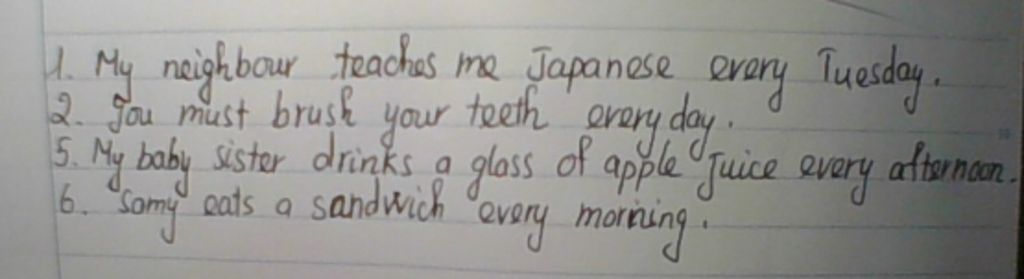 1. My neighbour teaches me Japanese every Tuesday.
2. You must brush your teeth every day.
5. My baby sister drinks a glass of apple juice every afternoon.
6. Samy eats a sandwich every morning.